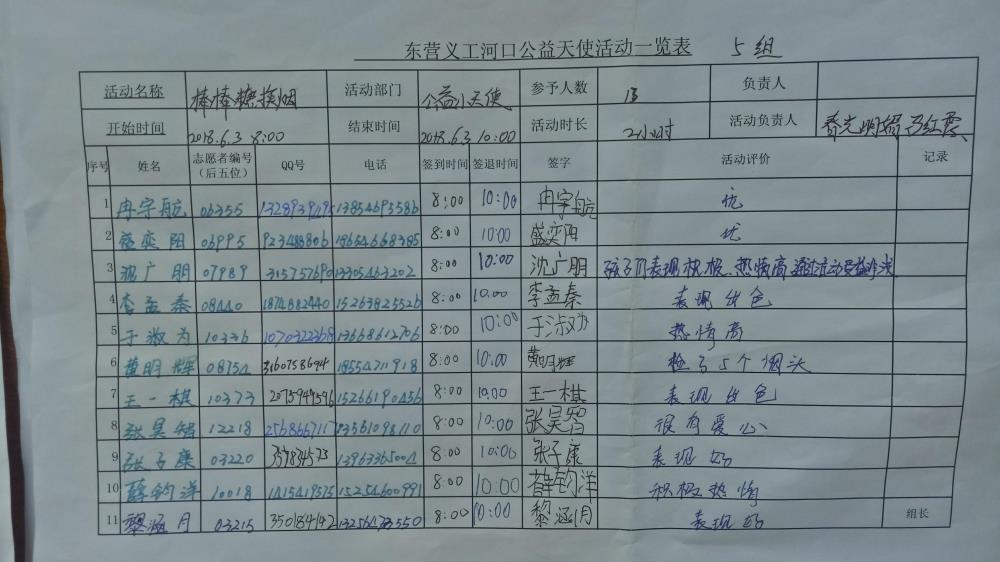 东营义工河口公益天使活动一览表 5组
活动名称 棒棒糖换烟 活动部门 公益小天使 参予人数 13 负责人
开始时间 2018.6.3 8:00 结束时间 2018.6.3 10:00 活动时长 2小时 活动负责人 春光明媚 马红霞
序号 姓名 志愿者编号（后五位） QQ号 电话 签到时间 签退时间 签字 活动评价 记录
1 冉宇航 06355 13854695586 8:00 10:00 冉宇航 优
2 盛奕阳 06995 923488806 18654668385 8:00 10:00 盛奕阳 优
3 沈广朋 07989 315757690 13305463202 8:00 10:00 沈广朋 孩子们表现积极、热情高
4 李孟泰 08440 1874882440 15263825526 8:00 10:00 李孟秦 表现出色
5 于淑为 10336 1070322368 13668612706 8:00 10:00 于淑为 热情高
6 黄明辉 08754 3160758694 18554711918 8:00 10:00 黄明辉 捡了5个烟头
7 王一棋 10373 2075949596 15266190456 8:00 10:00 王一棋 表现出色
8 张昊智 12218 256866717 13561098110 8:00 10:00 张昊智 很有爱心
9 张子康 03220 13963365004 8:00 10:00 张子康 表现好
10 薛钧洋 10018 1415419575 15254600991 8:00 10:00 薛钧洋 积极热情
11 黎涵月 03215 350184142 13256473550 8:00 10:00 黎涵月 表现好 组长